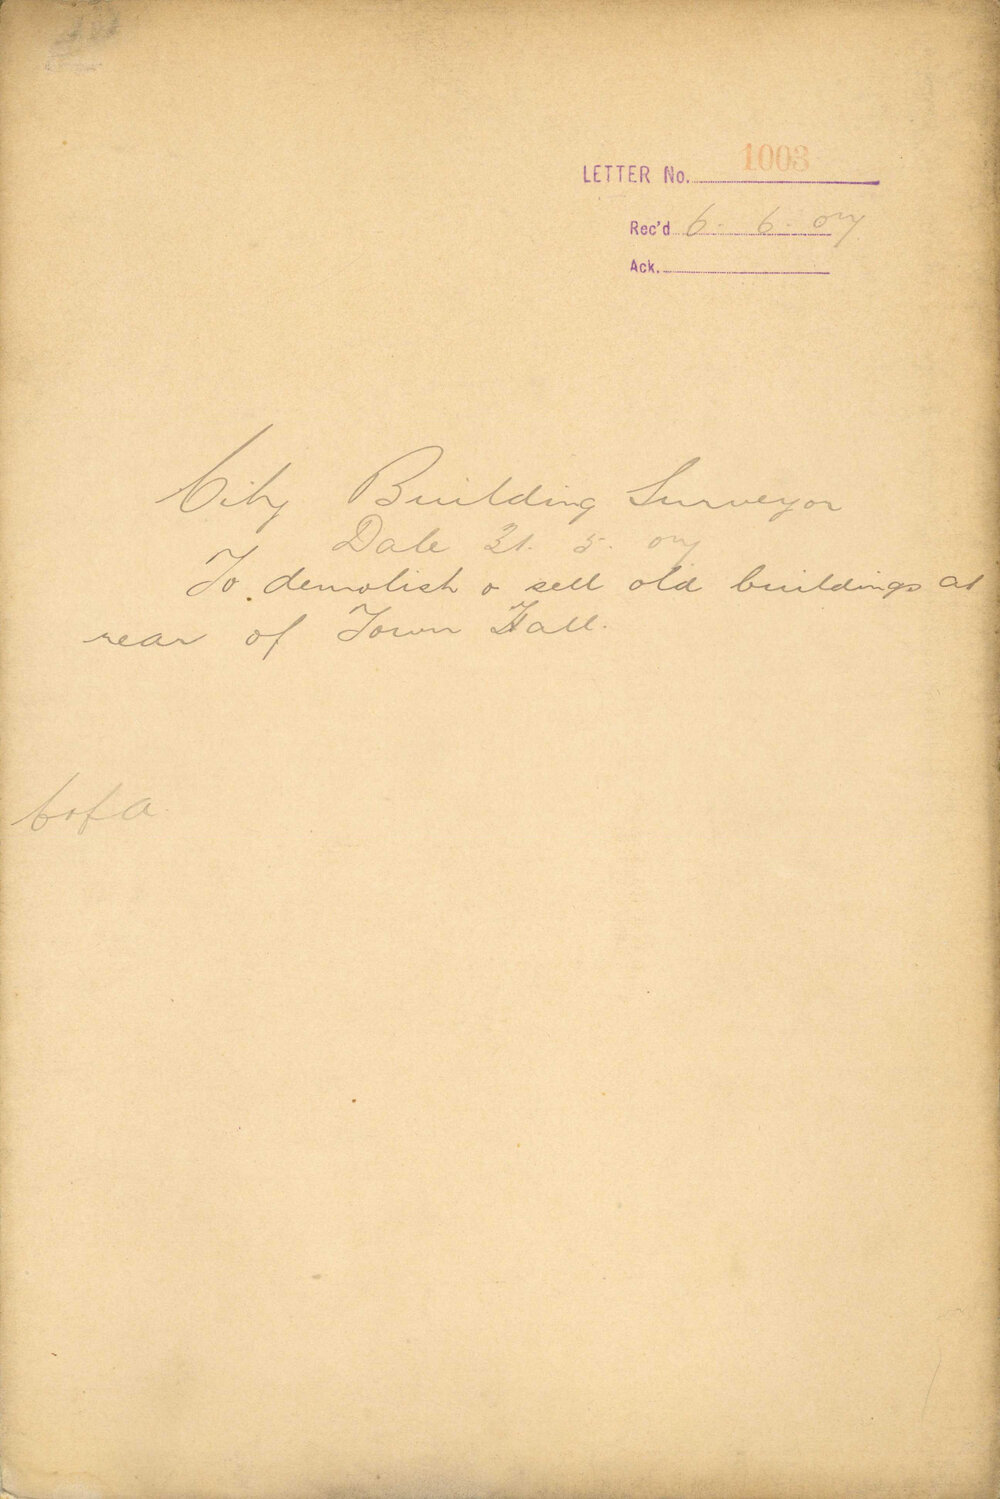 LETTER No. 1003
Rec'd 6. 6. 07
Ack.
City Building Surveyor
Date 31. 5. 07
To demolish & sell old buildings at
rear of Town Hall.
C of A